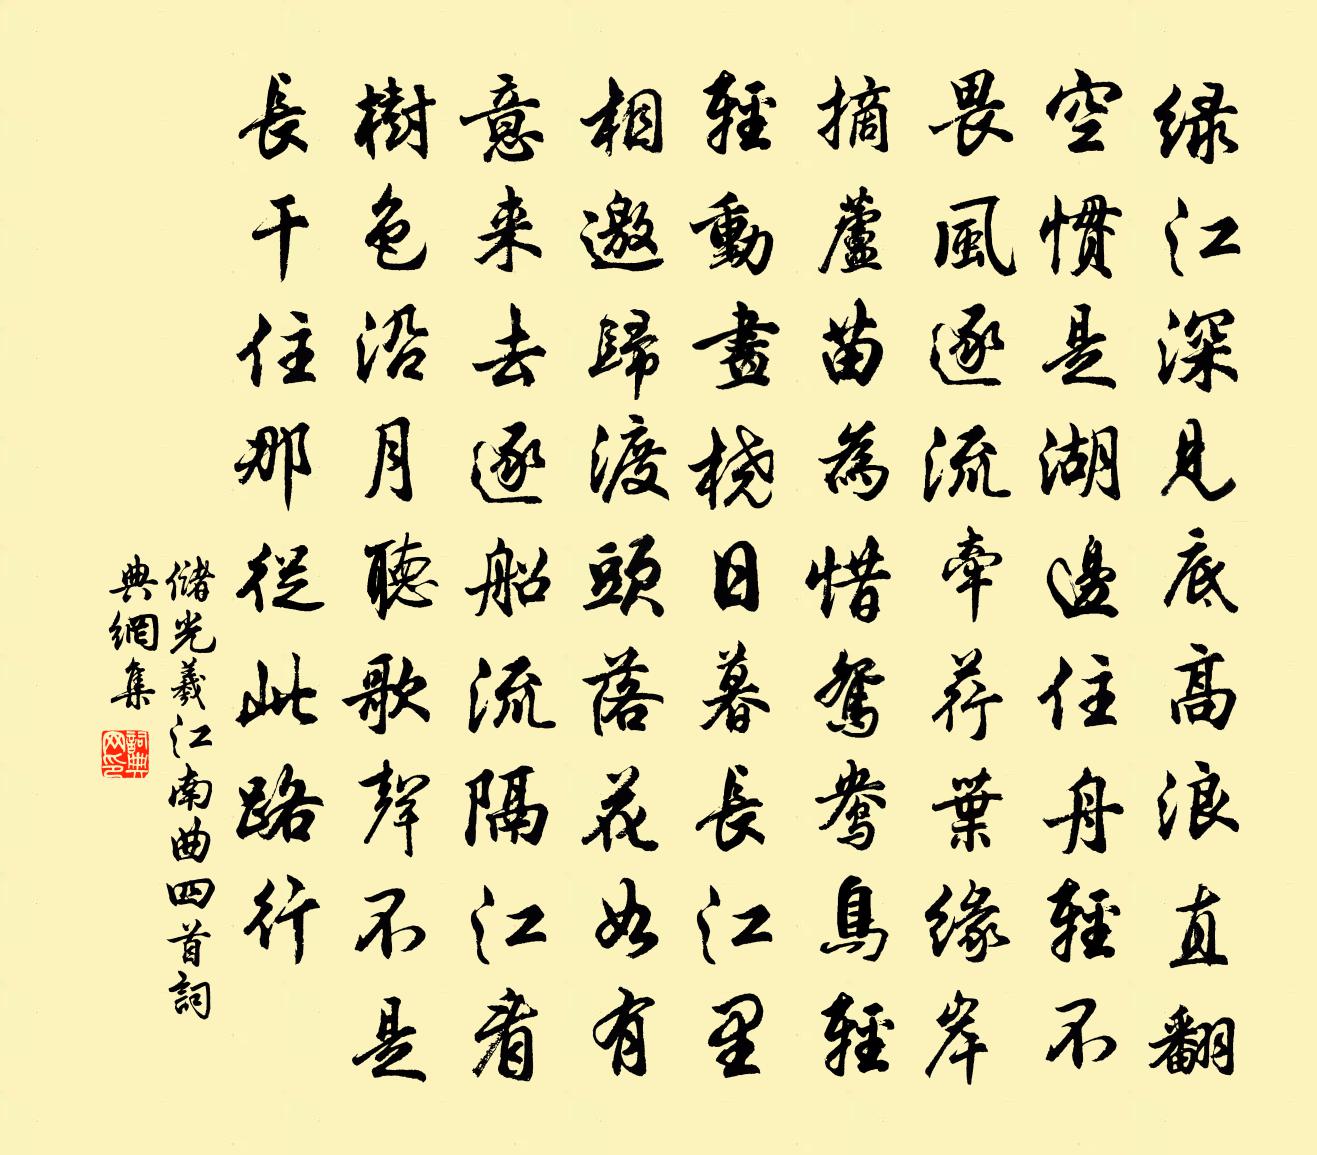 绿江深見底高浪直翻
空慣是湖邊住舟輕不
畏風逐流牽荇葉緣岸
摘蘆苗為惜鴛鴦鳥輕
輕動畫橈日暮長江里
相邀歸渡頭落花如有
意来去逐船流隔江看
樹色沿月聽歌聲不是
長干住那從此路行
儲光羲江南曲四首詞
典網集
詞典
网印